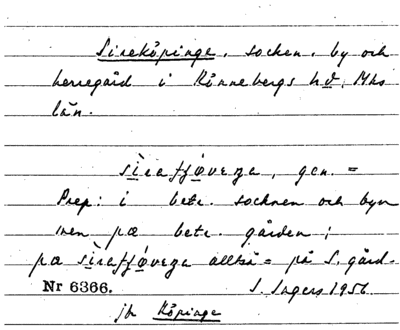 Sireköpinge, socken, by och
herregård i Rönnebergs hd, Mhs
län.
sìraʃʃøveŋa, gen. =
Prep: i betr. socknen och byn
men pæ betr. gården;
pæ sìraʃʃøveŋa alltså = på S. gård.
Nr 6366. S. Ingers 1956
jfr Köpinge